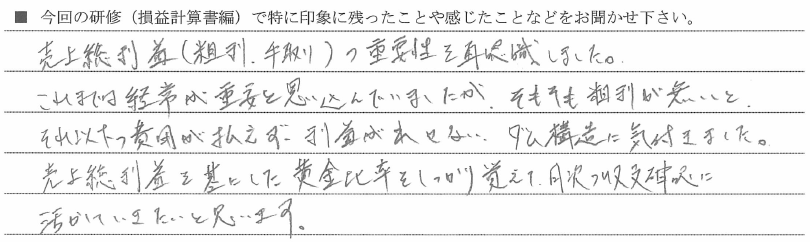 ■ 今回の研修（損益計算書編）で特に印象に残ったことや感じたことなどをお聞かせ下さい。
売上総利益（粗利、手取り）の重要性を再認識しました。
これまでは経常が重要と思い込んでいましたが、そもそも粗利が無いと、
それ以下の費用が払えず、利益が出せない、ダム構造に気付きました。
売上総利益を基にした黄金比率をしっかり覚えて、月次の収支確認に
活かしていきたいと思います。